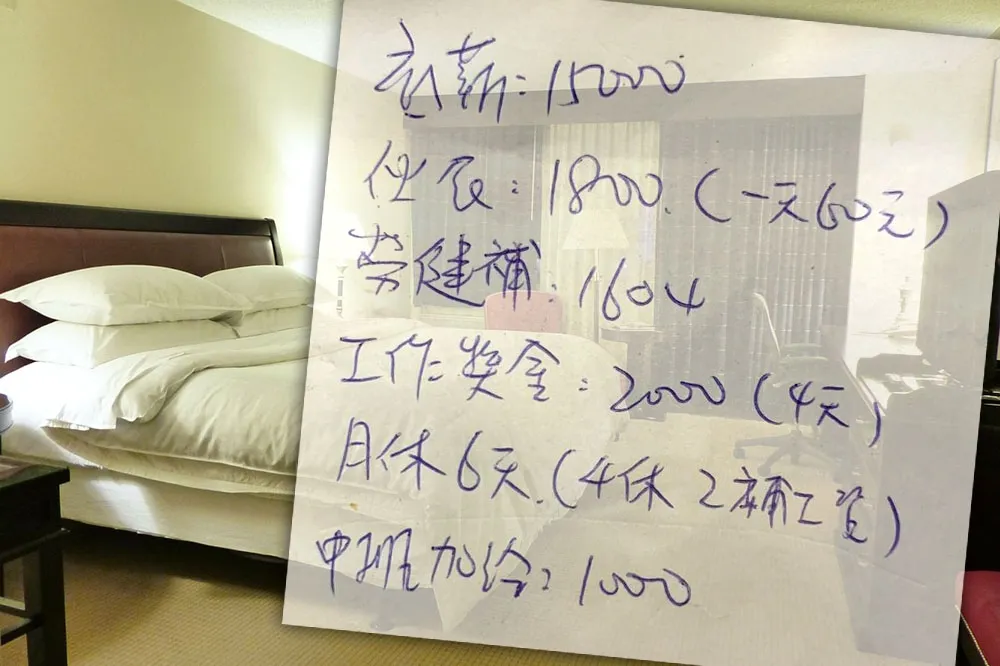 底薪：15000
伙食：1800.（一天60元）
劳健補：1604
工作獎金：2000（4天）
月休6天.（4休2補工資）
中班加给：1000